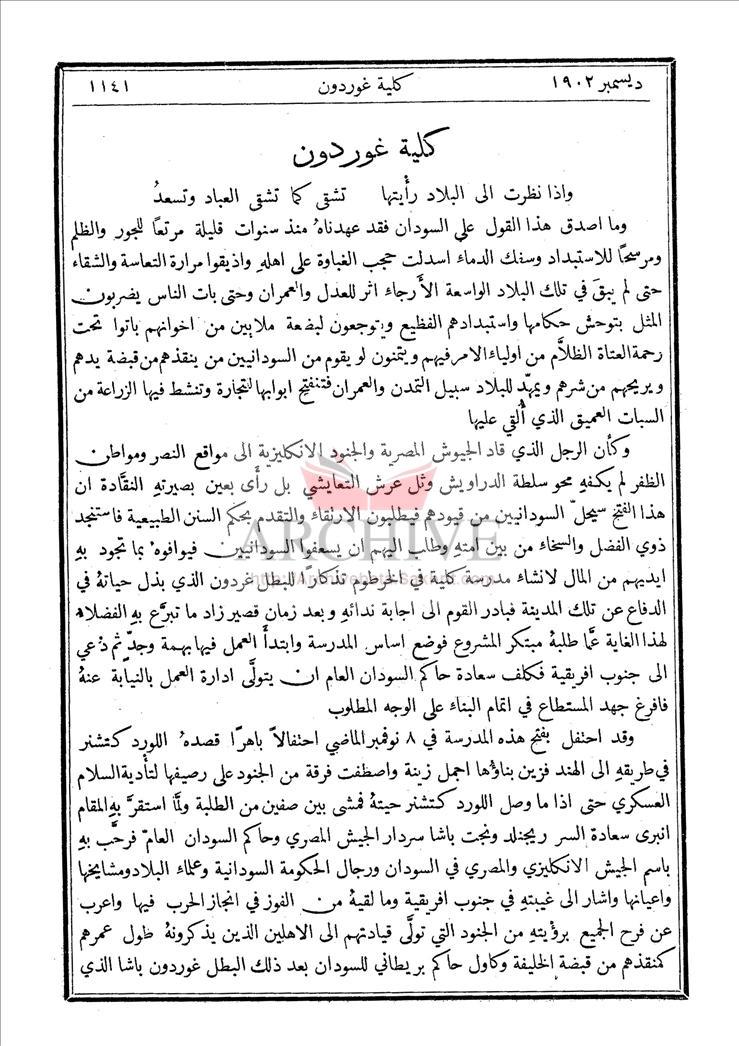 ديسمبر ١٩٠٢ كلية غوردون ١١٤١
كلية غوردون
واذا نظرت الى البلاد رأَيتها تشقى كما تشقى العباد وتسعدُ
وما اصدق هذا القول على السودان فقد عهدناهُ منذ سنوات قليلة مرتعاً للجور والظلم
ومرسحاً للاستبداد وسفك الدماء اسدلت حجب الغباوة على اهلهِ واذيقوا مرارة التعاسة والشقاء
حتى لم يبقَ في تلك البلاد الواسعة الأَرجاء اثر للعدل والعمران وحتى بات الناس يضربون
المثل بتوحش حكامها واستبدادهم الفظيع ويتوجعون لبضعة ملايين من اخوانهم باتوا تحت
رحمة العتاة الظلاَّم من اولياء الامر فيهم ويتمنون لو يقوم من السودانيين من ينقذهم من قبضة يدهم
ويريحهم من شرهم ويمهّد للبلاد سبيل التمدن والعمران فتنفتح ابوابها للتجارة وتنشط فيها الزراعة من
السبات العميق الذي أُلقي عليها
وكأَن الرجل الذي قاد الجيوش المصرية والجنود الانكليزية الى مواقع النصر ومواطن
الظفر لم يكفهِ محو سلطة الدراويش وثل عرش التعايشي بل رأَى بعين بصيرتهِ النقَّادة ان
هذا الفتح سيحلّ السودانيين من قيودهم فيطلبون الارتقاء والتقدم بحكم السنن الطبيعية فاستنجد
ذوي الفضل والسخاء من بين امتهِ وطلب اليهم ان يسعفوا السودانيين فيوافوهُ بما تجود بهِ
ايديهم من المال لانشاء مدرسة كلية في الخرطوم تذكاراً للبطل غردون الذي بذل حياتهُ في
الدفاع عن تلك المدينة فبادر القوم الى اجابة ندائهِ وبعد زمان قصير زاد ما تبرَّع بهِ الفضلاء
لهذا الغاية عمَّا طلبهُ مبتكر المشروع فوضع اساس المدرسة وابتدأَ العمل فيها بهمة وجدٍّ ثم دُعي
الى جنوب افريقية فكلف سعادة حاكم السودان العام ان يتولَّى ادارة العمل بالنيابة عنهُ
فافرغ جهد المستطاع في اتمام البناء على الوجه المطلوب
وقد احتفل بفتح هذه المدرسة في ٨ نوفمبر الماضي احتفالاً باهراً قصدهُ اللورد كتشنر
في طريقهِ الى الهند فزين بناؤها اجمل زينة واصطفت فرقة من الجنود على رصيفها لتأدية السلام
العسكري حتى اذا ما وصل اللورد كتشنر حيتهُ فمشى بين صفين من الطلبة ولمَّا استقرَّ بهِ المقام
انبرى سعادة السر ريجنلد ونجت باشا سردار الجيش المصري وحاكم السودان العامّ فرحَّب بهِ
باسم الجيش الانكليزي والمصري في السودان ورجال الحكومة السودانية وعلماء البلاد ومشايخها
واعيانها واشار الى غيبتهِ في جنوب افريقية وما لقيهُ من الفوز في انجاز الحرب فيها واعرب
عن فرح الجميع برؤيتهِ من الجنود التي تولَّى قيادتهم الى الاهلين الذين يذكرونهُ طول عمرهم
كمنقذهم من قبضة الخليفة وكاول حاكم بريطاني للسودان بعد ذلك البطل غوردون باشا الذي
ARCHIVE